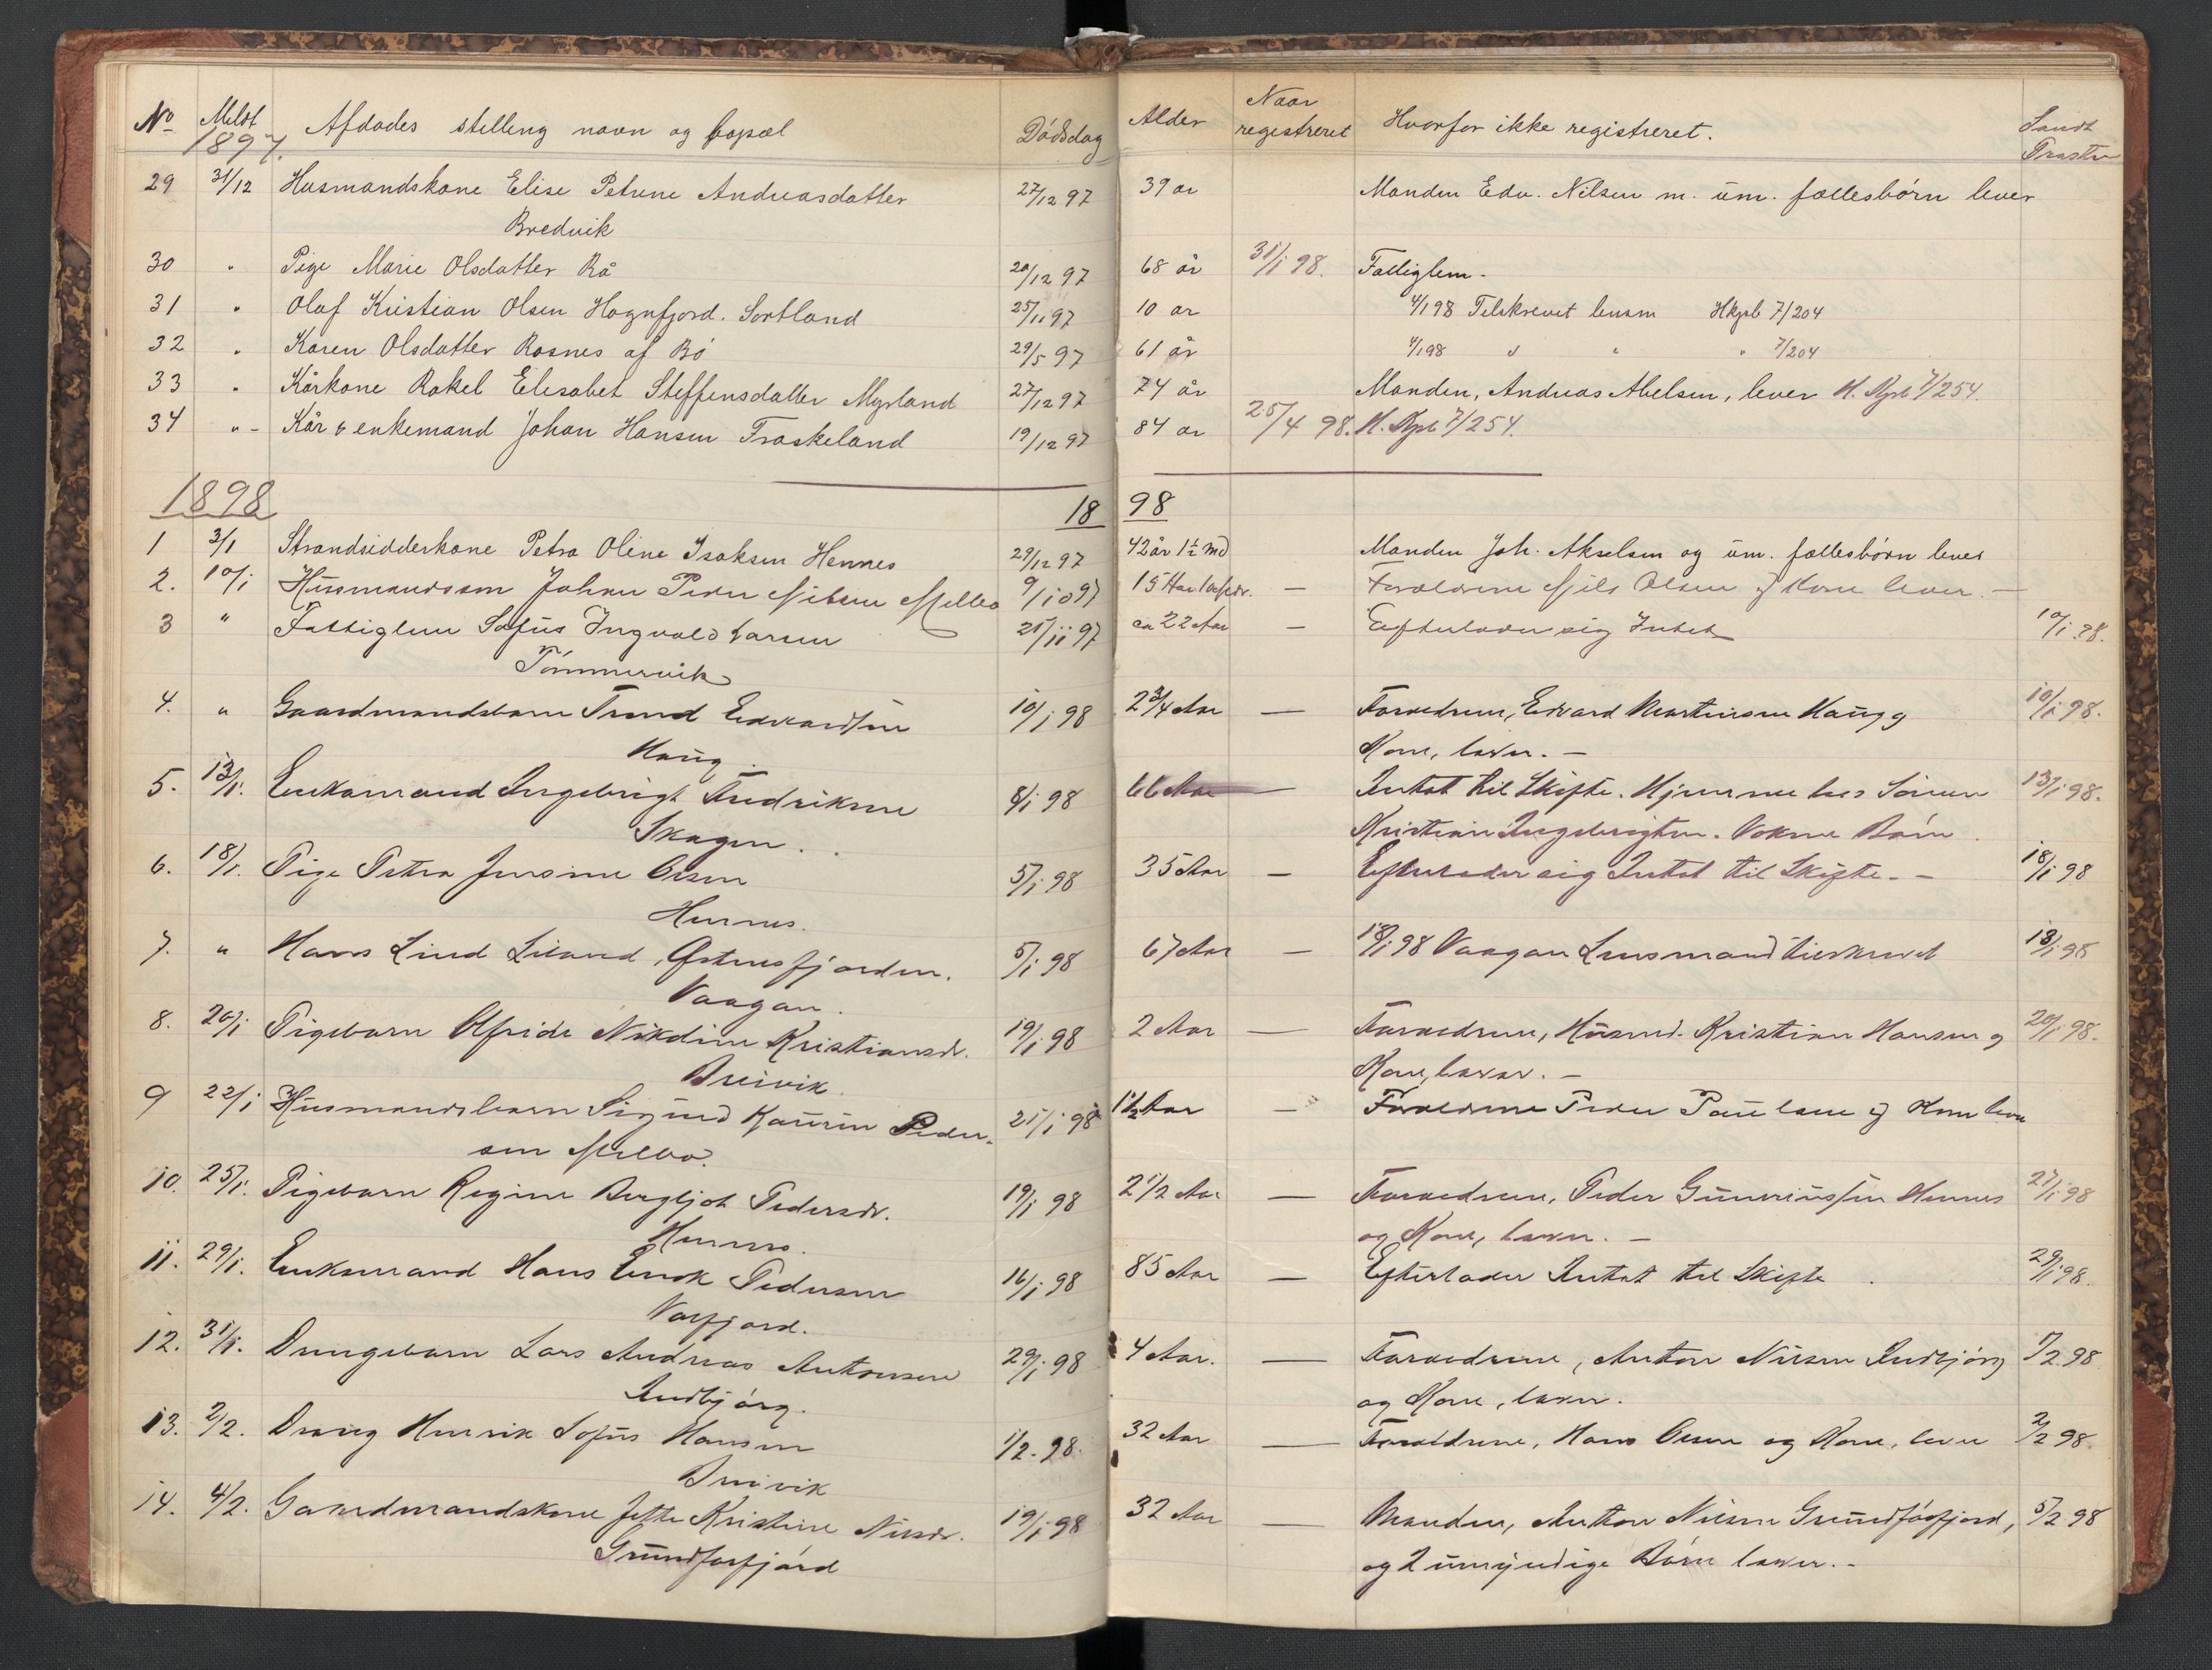 No Meldt Afdødes stilling navn og bopæl Dødsdag Alder Naar registreret Hvorfor ikke registreret. Sendt
1897.
29 31/12 Husmandskone Elise Petrine Andreasdatter 27/12 97 39 år Manden Edv. Nilsen m. um. fællesbørn lever
Bredvik
30 " Pige Marie Olsdatter Rå 20/12 97 68 år 31/1 98. Fattiglem.
31 " Olaf Kristian Olsen Hognfjord. Sortland 25/11 97 10 år 4/1 98 Tilskrevet lensm Hkpb 7/204
32 " Karen Olsdatter Rosnes af Bø 29/5 97 61 år 4/1 98 " " " 7/204
33 " Kårkone Rakel Elisabet Steffensdatter Myrland 27/12 97 74 år Manden, Andreas Abelsen, lever H. Kpb 7/254.
34 " Kår & enkemand Johan Hansen Traskeland 19/12 97 84 år 25/4 98. H. Kpb 7/254.
1898 18 98
1 3/1 Strandsidderkone Petra Oline Isaksen Hennes 29/12 97 42 år 1½ md Manden Joh. Akselsen og um. fællesbørn lever
2. 10/1 Husmandssøn Johan Peder Nilsen Melbo 9/10 97 15 Aar — Forældrene Nils Olsen & Kone lever. —
3 " Fattiglem Sofus Ingvald Larsen 25/11 97 ca 22 Aar — Efterlader sig Intet 10/1. 98.
Tømmervik
4. " Gaardmandsbarn Trond Edvardsen 10/1 98 2 3/4 Aar — Forældrene, Edvard Martinsen Haug og 10/1 98.
Haug. Kone, lever. —
5. 13/1. Enkemand Ingebrigt Fredriksen 8/1 98 66 Aar — Intet til Skifte. Hjemme hos Sønnen 13/1 98.
Skagen. Kristian Ingebrigtsen. Voksne Børn.
6. 18/1. Pige Petra Jensine Olsen 5/1 98 35 Aar — Efterlader sig Intet til Skifte. — 18/1 98
Hennes.
7. " Hans Lind Liland, Østnesfjorden. 5/1 98 67 Aar — 18/1 98 Vaagan Lensmand tilskrevet 18/1 98
Vaagan.
8. 20/1 Pigebarn Alfride Nikoline Kristiansdr. 19/1 98 2 Aar — Forældrene, Husmd. Kristian Hansen og 20/1 98.
Breivik. Kone, lever. —
9 22/1 Husmandsbarn Sigurd Kaurin Peder- 21/1 98 1½ Aar — Forældrene Peder Paulsen & Kone lever
sen Melbo.
10. 25/1. Pigebarn Regine Bergljot Pedersdr. 19/1 98 2 1/2 Aar — Forældrene, Peder Gunerius sen Hennes 27/1 98
Hennes. og Kone, lever. —
11. 29/1. Enkemand Hans Enok Pedersen 16/1 98 85 Aar — Efterlader Intet til Skifte. 29/1 98.
Valfjord.
12. 31/1. Drengebarn Lars Andreas Antonsen 29/1 98 4 Aar. — Forældrene, Anton Nilsen Indbjørg 1/2 98
Indbjørg. og Kone, lever.
13. 2/2. Dreng Henrik Sofus Hansen 1/2. 98. 32 Aar — Forældrene, Hans Olsen og Kone, lever 2/2 98.
Breivik
14. 4/2. Gaardmandskone Jette Kristine Nilsdr. 19/1 98 32 Aar — Manden, Anton Nilsen Grundfôrfjord, 5/2 98
Grundforfjord og 2 umyndige Børn lever. -